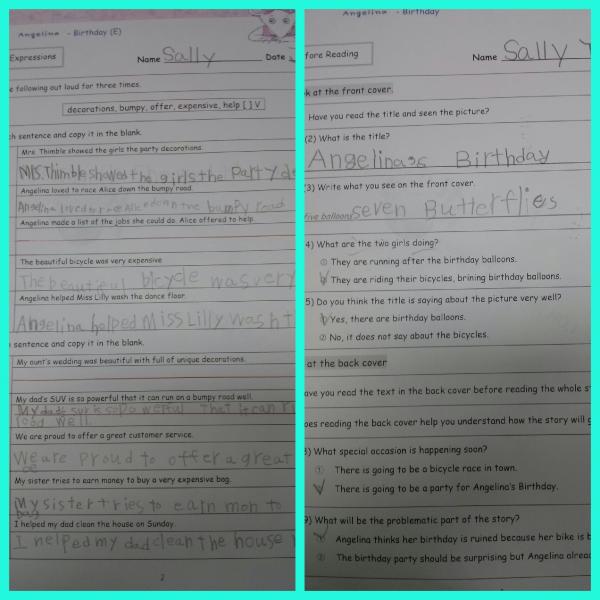 Angelina - Birthday (E)
Expressions
Name Sally Date
e following out loud for three times.
decorations, bumpy, offer, expensive, help [ ] V
ch sentence and copy it in the blank.
Mrs. Thimble showed the girls the party decorations.
Mrs. Thimble showed the girls the Party de
Angelina loved to race Alice down the bumpy road.
Angelina loved to race Alice down the bumpy road
Angelina made a list of the jobs she could do. Alice offered to help.
The beautiful bicycle was very expensive
The beautiful bicycle was very
Angelina helped Miss Lilly wash the dance floor.
Angelina helped Miss Lilly wash t
sentence and copy it in the blank.
My aunt's wedding was beautiful with full of unique decorations.
My dad's SUV is so powerful that it can run on a bumpy road well.
My dad's suv is so Powerful that it can r
road well
We are proud to offer a great customer service.
We are proud to offer a great
My sister tries to earn money to buy a very expensive bag.
My sister tries to earn mon to
bag
I helped my dad clean the house on Sunday.
I helped my dad clean the house
2
Angelina - Birthday
fore Reading
Name Sally
k at the front cover.
Have you read the title and seen the picture?
(2) What is the title?
Angelina's Birthday
(3) Write what you see on the front cover.
five balloons seven Butterflies
4) What are the two girls doing?
① They are running after the birthday balloons.
They are riding their bicycles, brining birthday balloons.
5) Do you think the title is saying about the picture very well?
Yes, there are birthday balloons.
② No, it does not say about the bicycles.
at the back cover
ave you read the text in the back cover before reading the whole s
oes reading the back cover help you understand how the story will g
) What special occasion is happening soon?
① There is going to be a bicycle race in town.
There is going to be a party for Angelina's Birthday.
9) What will be the problematic part of the story?
Angelina thinks her birthday is ruined because her bike is b
② The birthday party should be surprising but Angelina alrea